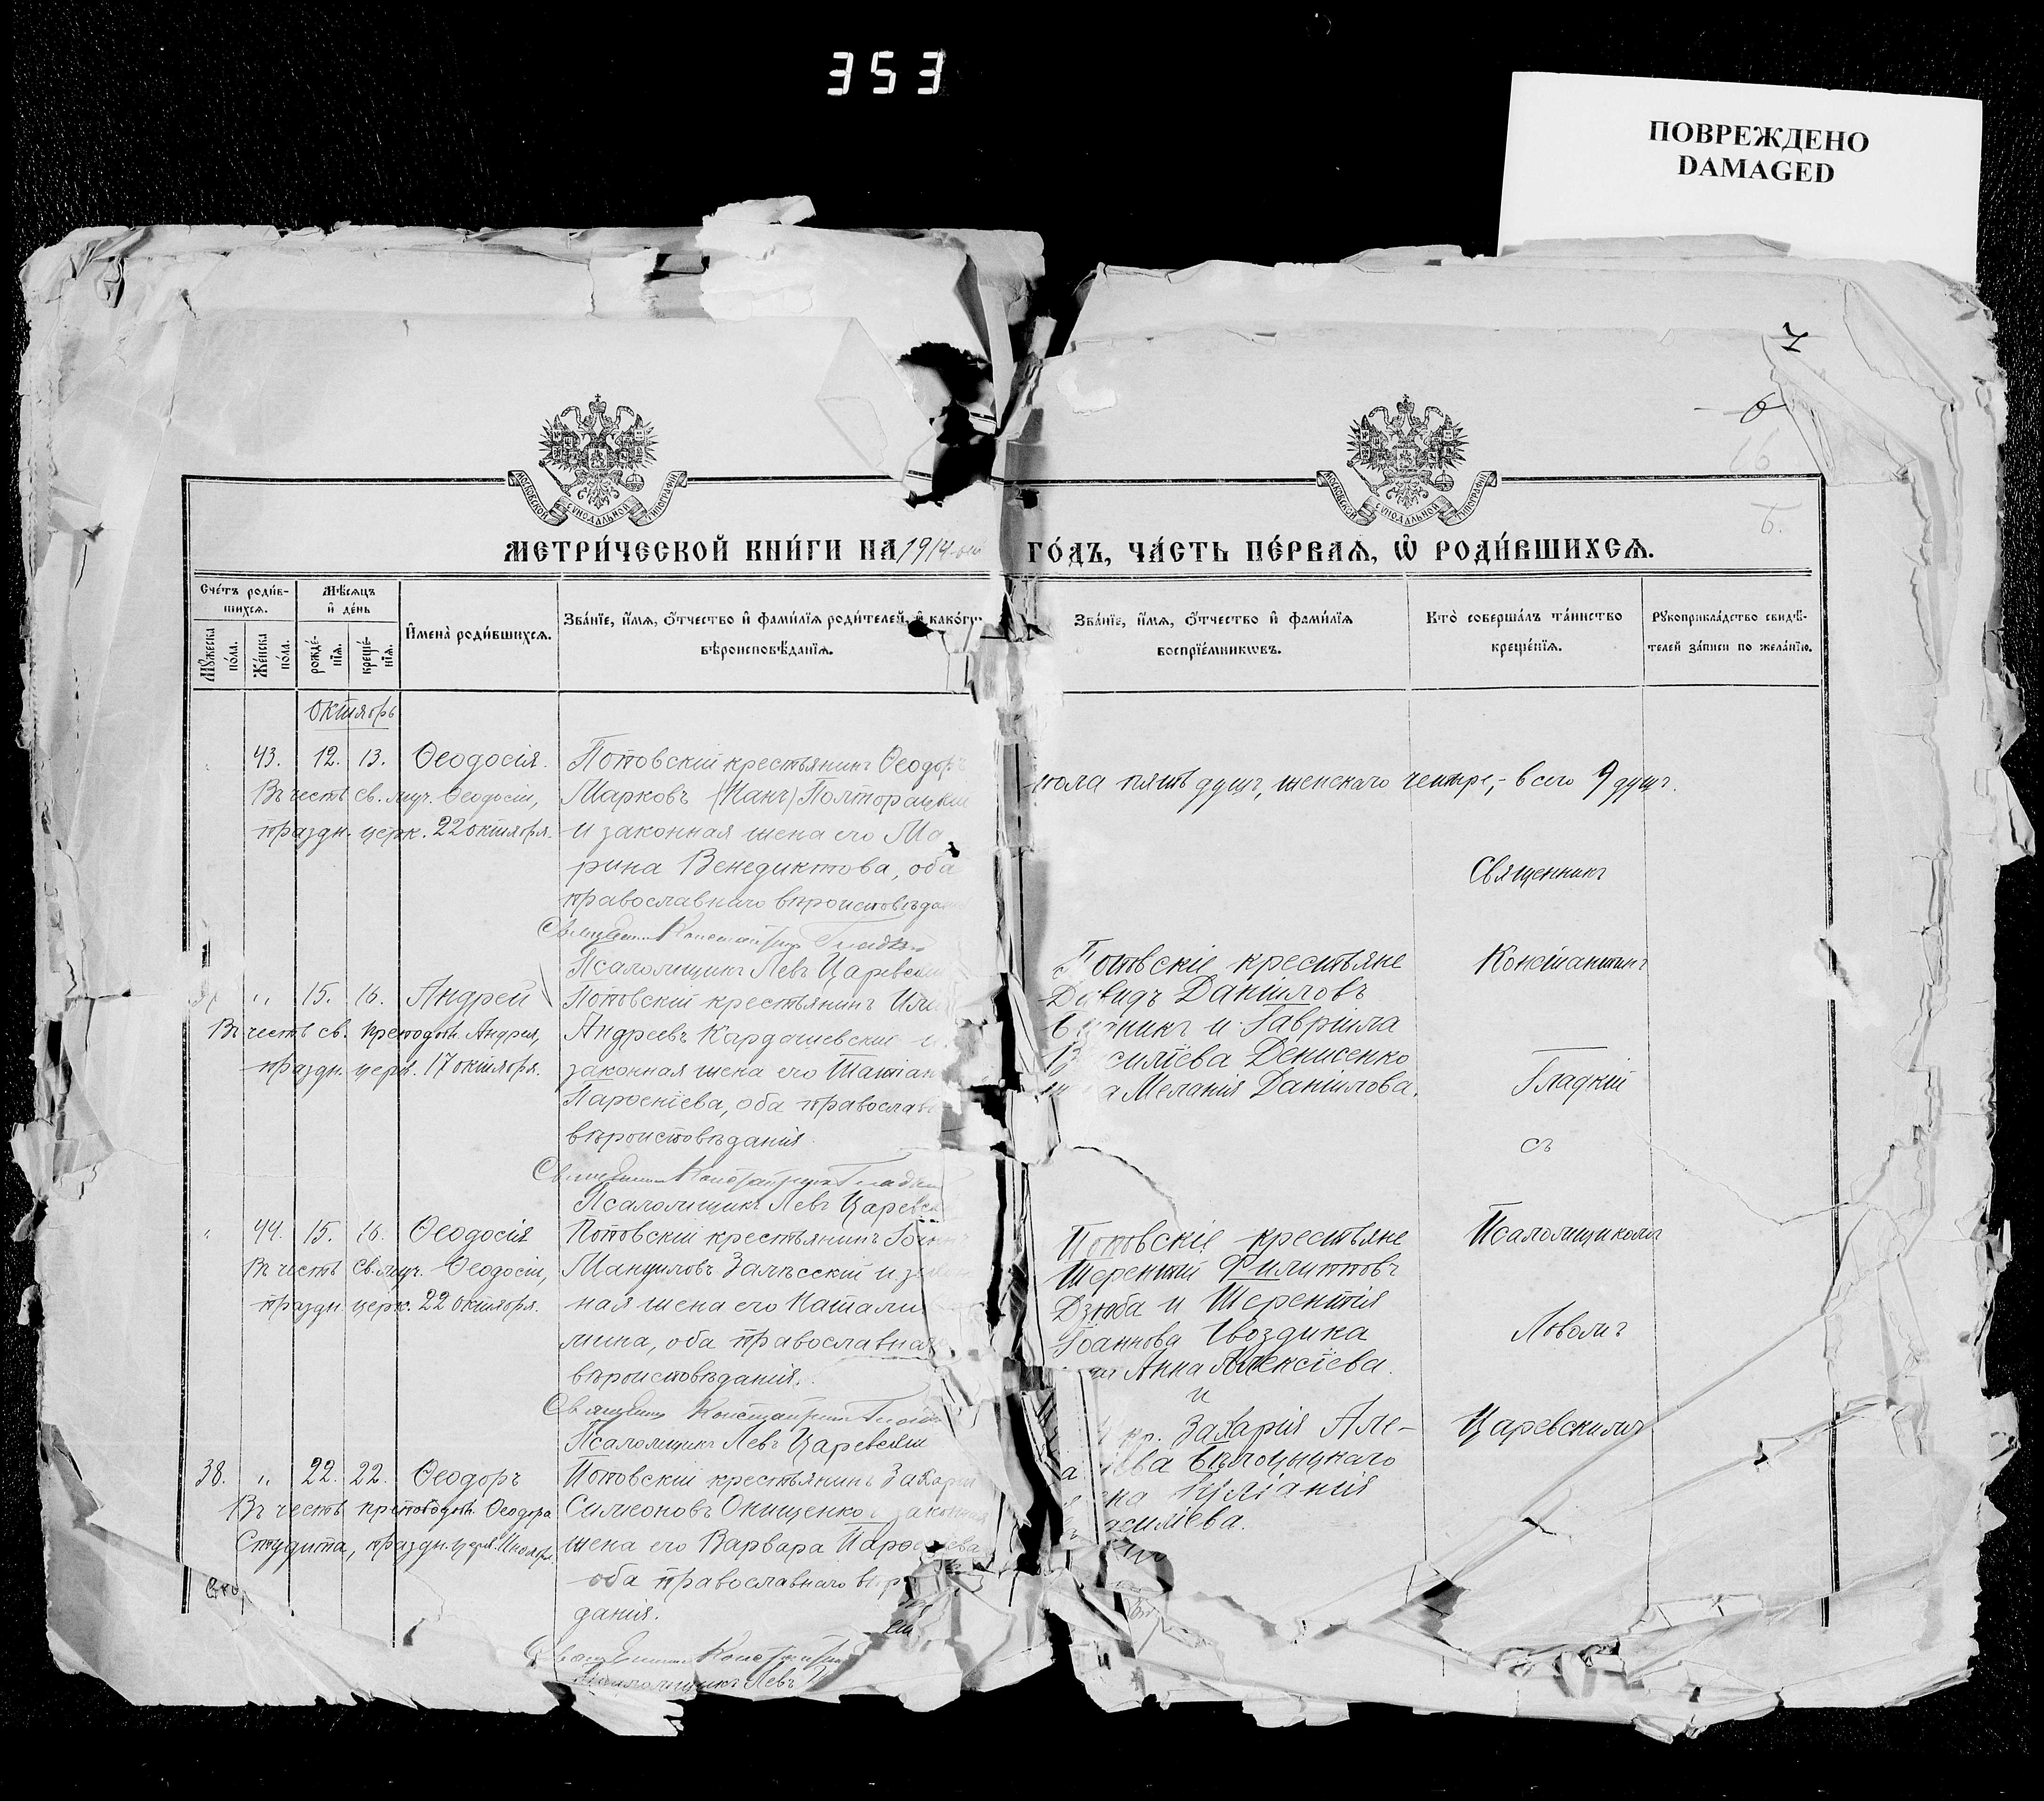 353
ПОВРЕЖДЕНО
DAMAGED
7
6
16
МОСКОВСКОЙ СѴНОДАЛЬНОЙ ТИПОГРАФІИ
МОСКОВСКОЙ СѴНОДАЛЬНОЙ ТИПОГРАФІИ
МЕТРИ́ЧЕСКОЙ КНИ́ГИ НА 1914
ГО́ДЪ, ЧА́СТЬ ПЕ́РВАЯ, Ѡ҆ РОДИ́ВШИХСЯ.
Сче́тъ роди́в-
шихся.
Мѣ́сяцъ
и҆ де́нь
Мꙋ́жеска
по́ла.
Же́нска
по́ла.
рожде́-
нїя.
креще́-
нїя.
И҆мена̀ роди́вшихся.
Зва́нїе, и҆́мя, ѻ҆́тчество и҆ фами́лїя роди́телей, и҆ како́гѡ
вѣроисповѣ́данїя.
Зва́нїе, и҆́мя, ѻ҆́тчество и҆ фами́лїя
воспрїе́мникѡвъ.
Кто̀ соверша́лъ та́инство
креще́нїя.
Рꙋкоприкла́дство свидѣ́-
телей за́писи по жела́нїю.
Октябрь
43. 12. 13. Ѳеодосія.
Въ честь св. муч. Ѳеодосіи,
праздн. церк. 22 октября.
Поповскій крестьянинъ Ѳеодоръ
Марковъ (Панъ) Полторацкій
и законная жена его Ма
рина Венедиктова, оба
православнаго вѣроисповѣда
Священ. Константинъ Гладкій
Псаломщикъ Левъ Царевск
пола пять душъ, женскаго четыре,- всего 9 душъ.
„ 15. 16. Андрей
Въ честь св. преподоб. Андрея,
праздн. церк. 17 октября.
Поповскій крестьянинъ
Андреевъ Кардашевскій
законная жена его Татіан
Парѳеніева, оба православ
вѣроисповѣданія.
Священ. Константинъ Гладкій
Псаломщикъ Левъ Царевск
Поповскіе крестьяне
Давидъ Даниловъ
и Гавріила
Василіева Денисенко
а Меланія Данилова.
44. 15. 16. Ѳеодосія
Въ честь св. муч. Ѳеодосіи,
праздн. церк. 22 октября.
Поповскій крестьянинъ Іоанн
Мануиловъ Залѣсскій и
ная жена его Натали
мина, оба православна
вѣроисповѣданія.
Священ. Константинъ Гладкій
Псаломщикъ Левъ Царевскій
Поповскіе крестьяне
Терентій Филипповъ
Дзюба и Терентія
Іоаннова Гвоздика
Анна Алексіева.
38. „ 22. 22. Ѳеодоръ
Въ честь преподоб. Ѳеодора
Студита, праздн. церк. 11 ноября.
Поповскій крестьянинъ Захарій
Симеоновъ Онищенко и законная
жена его Варвара
оба православнаго
данія.
Священ. Константинъ
Псаломщикъ Левъ
и
кр. Захарія Але-
Бѣлоцыцкаго
Іуліанія
Василіева.
Священникъ
Константинъ
Гладкій
съ
Псаломщикомъ
Львомъ
Царевскимъ